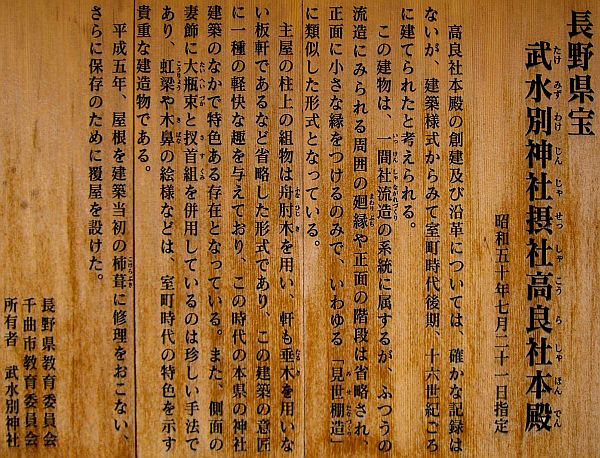 長野県宝
武水別神社摂社高良社本殿
たけみずわけじんじゃせっしゃこうらしゃほんでん
昭和五十年七月二十一日指定
高良社本殿の創建及び沿革については、確かな記録は
ないが、建築様式からみて室町時代後期、十六世紀ごろ
に建てられたと考えられる。
この建物は、一間社流造の系統に属するが、ふつうの
いっけんしゃながれづくり
流造にみられる周囲の廻縁や正面の階段は省略され、
まわりぶち
正面に小さな縁をつけるのみで、いわゆる「見世棚造」
みせだなづくり
に類似した形式となっている。
主屋の柱上の組物は舟肘木を用い、軒も垂木を用いな
ひじき
たるき
い板軒であるなど省略した形式であり、この建築の意匠
に一種の軽快な趣を与えており、この時代の本県の神社
建築のなかで特色ある存在となっている。また、側面の
妻飾に大瓶束と扠首組を併用しているのは珍しい手法で
たいへいづか
さすぐみ
あり、虹梁や木鼻の絵様などは、室町時代の特色を示す
こうりょう
きばな
貴重な建造物である。
平成五年、屋根を建築当初の杮葺に修理をおこない、
こけらぶき
さらに保存のために覆屋を設けた。
長野県教育委員会
千曲市教育委員会
所有者 武水別神社